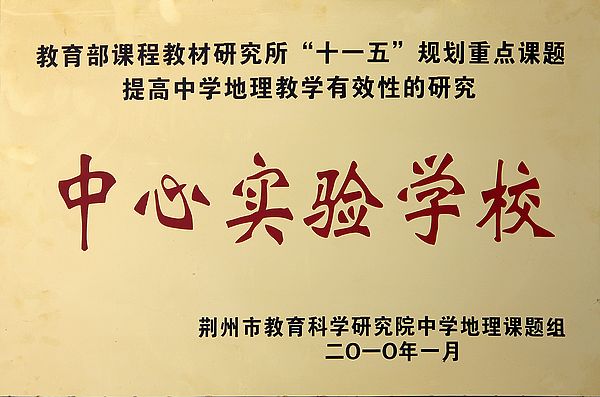 教育部课程教材研究所“十一五”规划重点课题
提高中学地理教学有效性的研究
中心实验学校
荆州市教育科学研究院中学地理课题组
二〇一〇年一月